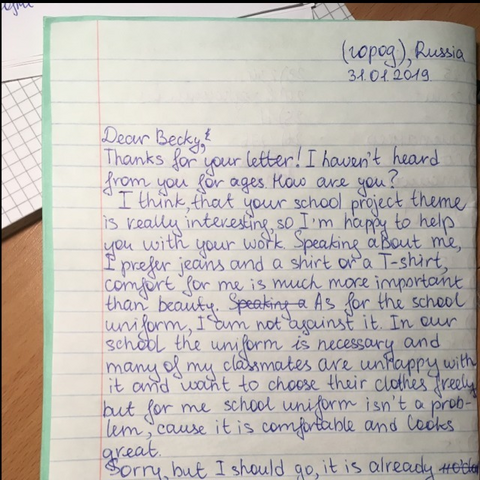 (город), Russia
31.01.2019
Dear Becky,
Thanks for your letter! I haven't heard
from you for ages. How are you?
I think, that your school project theme
is really interesting, so I'm happy to help
you with your work. Speaking about me,
I prefer jeans and a shirt or a T-shirt,
comfort for me is much more important
than beauty. Speaking a As for the school
uniform, I am not against it. In our
school the uniform is necessary and
many of my classmates are unhappy with
it and want to choose their clothes freely,
but for me school uniform isn't a prob-
lem, cause it is comfortable and looks
great.
Sorry, but I should go, it is already